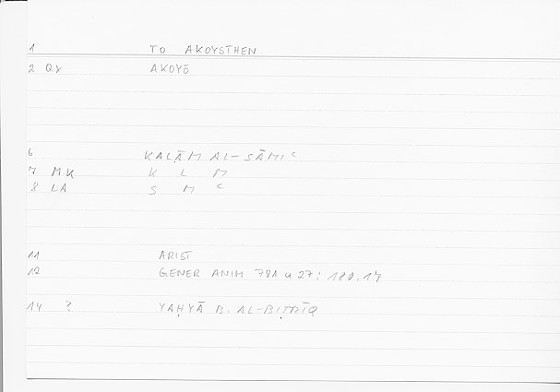 1 TO AKOYSTHEN
2 QX AKOYŌ
6 KALĀM AL-SĀMIᶜ
7 MK K L M
8 LA S M ᶜ
11 ARIST
12 GENER ANIM 781 a 27: 180.14
14 ? YAḤYĀ B. AL-BIṬRĪQ